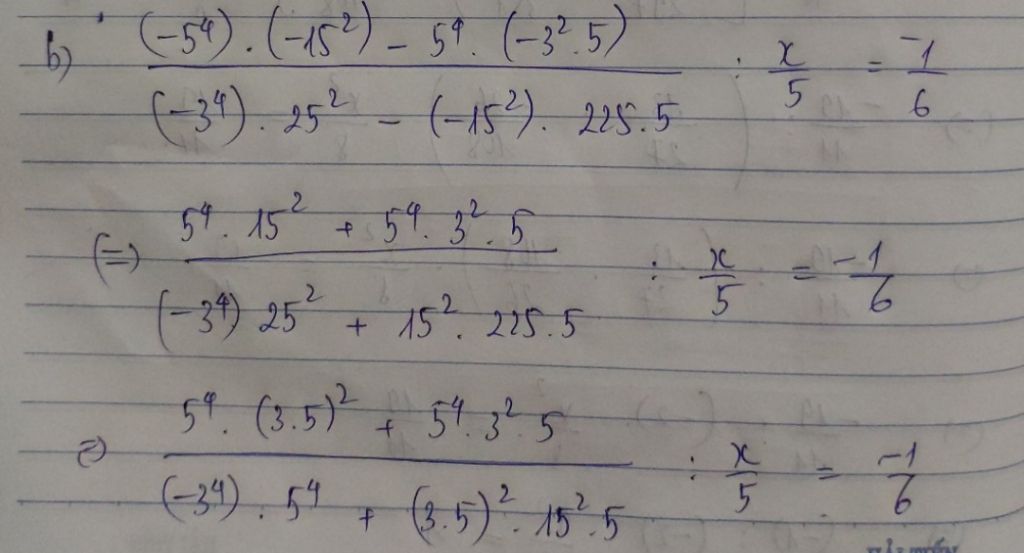 b) \frac{(-5^4) \cdot (-15^2) - 5^4 \cdot (-3^2 \cdot 5)}{(-3^4) \cdot 25^2 - (-15^2) \cdot 225 \cdot 5} : \frac{x}{5} = \frac{-1}{6}
(=) \frac{5^4 \cdot 15^2 + 5^4 \cdot 3^2 \cdot 5}{(-3^4) 25^2 + 15^2 \cdot 225 \cdot 5} : \frac{x}{5} = \frac{-1}{6}
=) \frac{5^4 \cdot (3 \cdot 5)^2 + 5^4 \cdot 3^2 \cdot 5}{(-3^4) \cdot 5^4 + (3 \cdot 5)^2 \cdot 15^2 \cdot 5} : \frac{x}{5} = \frac{-1}{6}